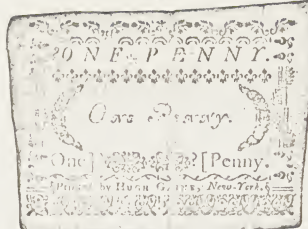 ONE PENNY.
One Penny.
One] [Penny.
[Printed by HUGH GAINE, New-York.]